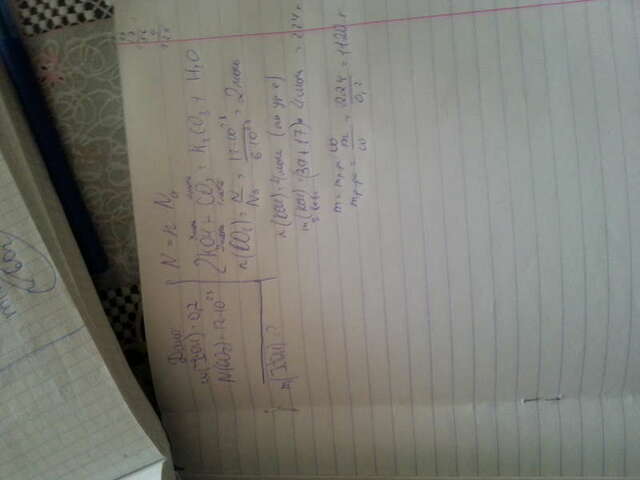 Дано
ω(KOH) = 0,2
N(CO₂) = 12·10²³
m(KOH) - ?
N = n · Nₐ
2KOH + CO₂ = K₂CO₃ + H₂O
n(CO₂) = N/Nₐ = 12·10²³/6·10²³ = 2 моль
n(KOH) = 4 моль
m(KOH) = (39+17) · 4 моль = 224 г
m = m р-ра · ω
m р-ра = m/ω = 224/0,2 = 1120 г